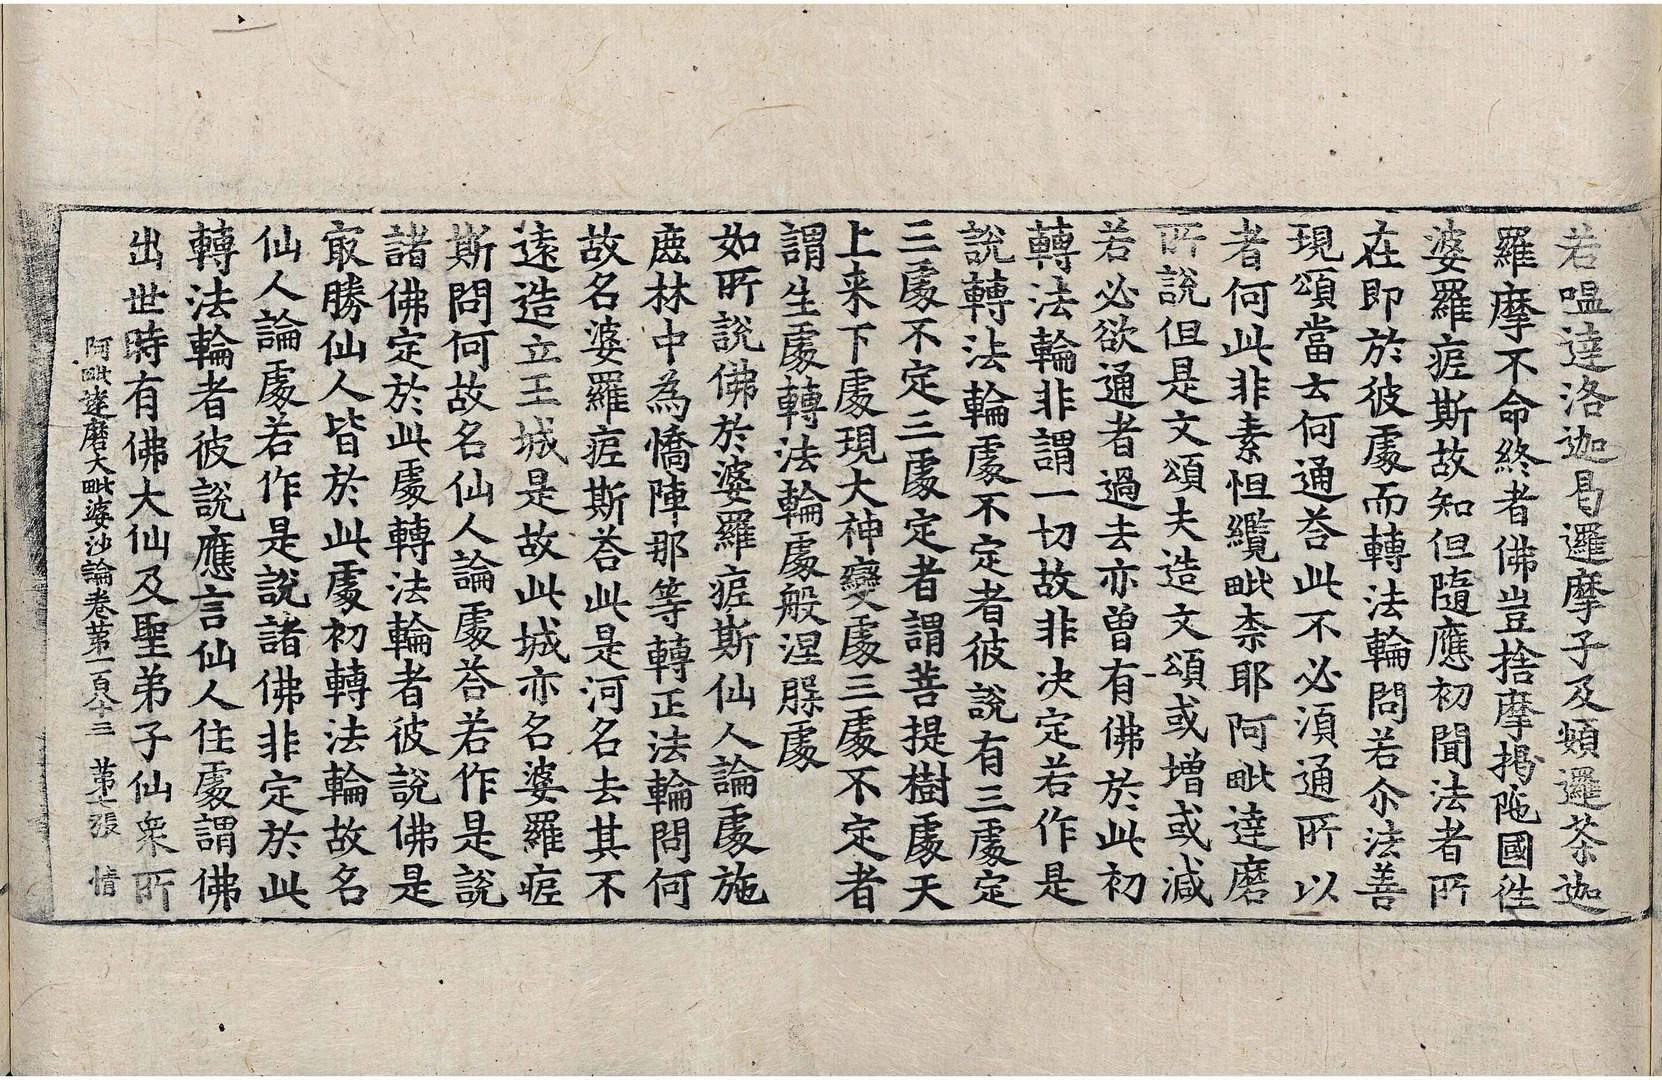 若嗢達洛迦曷邏摩子及頞邏荼迦
羅摩不命終者佛豈捨摩揭陁國往
婆羅痆斯故知但隨應初聞法者所
在即於彼處而轉法輪問若尒法善
現頌當云何通荅此不必須通所以
者何此非素怛纜毗柰耶阿毗達磨
所說但是文頌夫造文頌或增或減
若必欲通者過去亦曾有佛於此初
轉法輪非謂一切故非决定若作是
說轉法輪處不定者彼說有三處定
三處不定三處定者謂菩提樹處天
上来下處現大神變處三處不定者
謂生處轉法輪處般涅槃處
如所說佛於婆羅痆斯仙人論處施
鹿林中為憍陣那等轉正法輪問何
故名婆羅痆斯荅此是河名去其不
遠造立王城是故此城亦名婆羅痆
斯問何故名仙人論處荅若作是說
諸佛定於此處轉法輪者彼說佛是
㝡勝仙人皆於此處初轉法輪故名
仙人論處若作是說諸佛非定於此
轉法輪者彼說應言仙人住處謂佛
出世時有佛大仙及聖弟子仙衆所
阿毗達磨大毗婆沙論卷苐一百八十三 苐七張 情